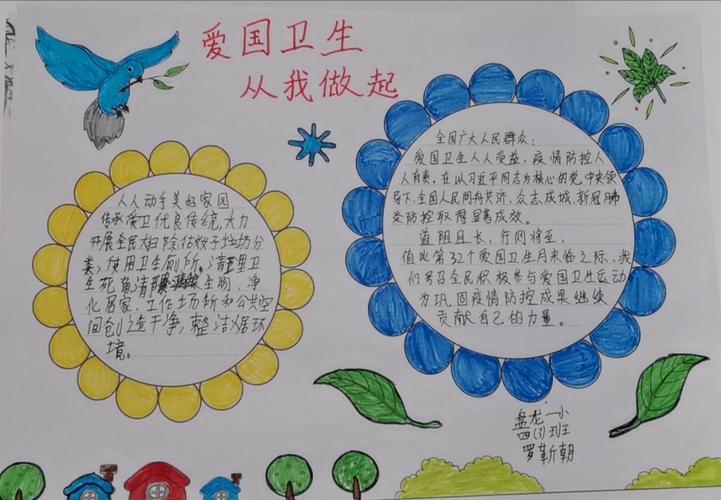 爱国卫生
从我做起
人人动手美的家园
传承爱卫优良传统,大力
开展全民扫除
类,使用卫生厕所。清理卫
生死角清 生物,净
化居家、工作场所和公共空
间创造干净,整洁居环
境。
全国广大人民群众:
爱国卫生人人受益,疫情防控人
人有责,在以习近平同志为核心的党中央领
导下,全国人民同舟共济、众志成城,新冠肺
炎防控取得显著成效。
道阻且长,行则将至,
值此第32个爱国卫生月来临之际,我
们号召全民积极参与爱国卫生运动
为巩固疫情防控成果继续
贡献自己的力量。
盘龙一小
四(3)班
罗靳朝